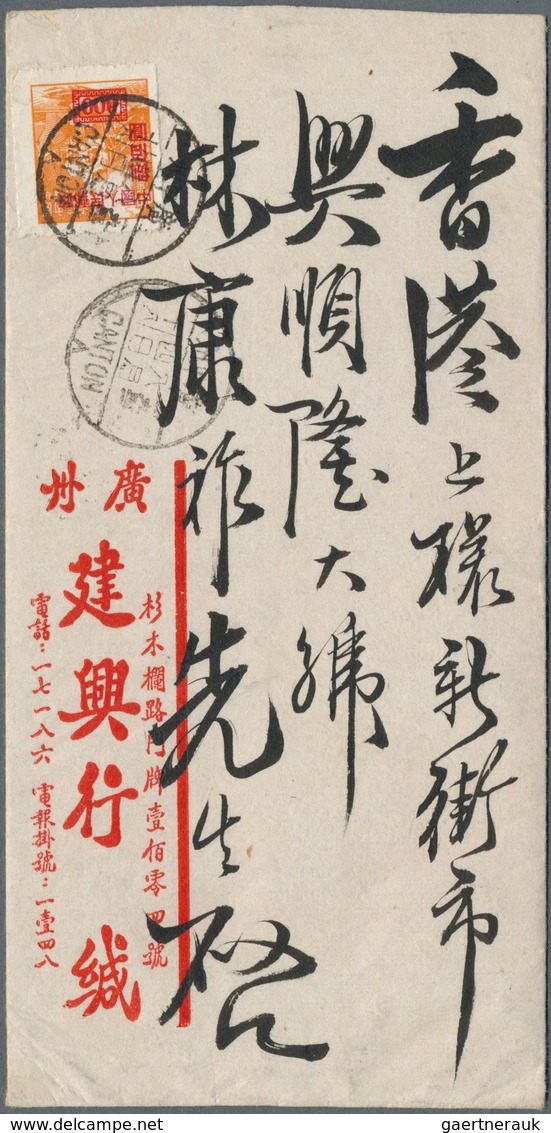 香港上環新街市
興順隆大號
林康祚先生啟
廣州
杉木欄路門牌壹佰零四號
建興行緘
電話：一七一八六 電報掛號：一壹四八
中國人民郵政
CANTON
A
CANTON
A
gaertnerauk